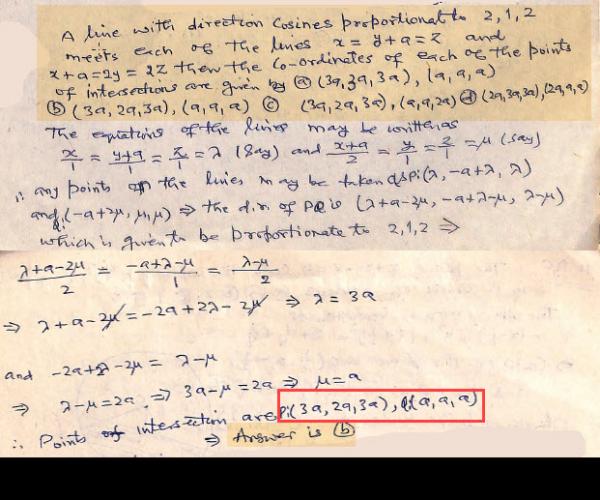 A line with direction cosines proportional to 2, 1, 2
meets each of the lines x = y+a = z and
x+a = 2y = 2z then the co-ordinates of each of the points
of intersections are given by ⓐ (3a, 3a, 3a), (a, a, a)
ⓑ (3a, 2a, 3a), (a, a, a) ⓒ (3a, 2a, 3a), (a, a, 2a) ⓓ (2a, 3a, 3a), (2a, a, a)
The equations of the lines may be written as
x/1 = y+a/1 = z/1 = λ (say) and x+a/2 = y/1 = z/1 = μ (say)
∴ any points on the lines may be taken as P:(λ, -a+λ, λ)
and Q:(-a+2μ, μ, μ) ⇒ the d.r. of PQ is (λ+a-2μ, -a+λ-μ, λ-μ)
which is given to be proportionate to 2, 1, 2 ⇒
λ+a-2μ/2 = -a+λ-μ/1 = λ-μ/2
⇒ λ+a-2μ = -2a+2λ-2μ ⇒ λ = 3a
and -2a+2λ-2μ = λ-μ
⇒ λ-μ = 2a ⇒ 3a-μ = 2a ⇒ μ = a
∴ Points of intersection are P:(3a, 2a, 3a), Q:(a, a, a)
⇒ Answer is ⓑ